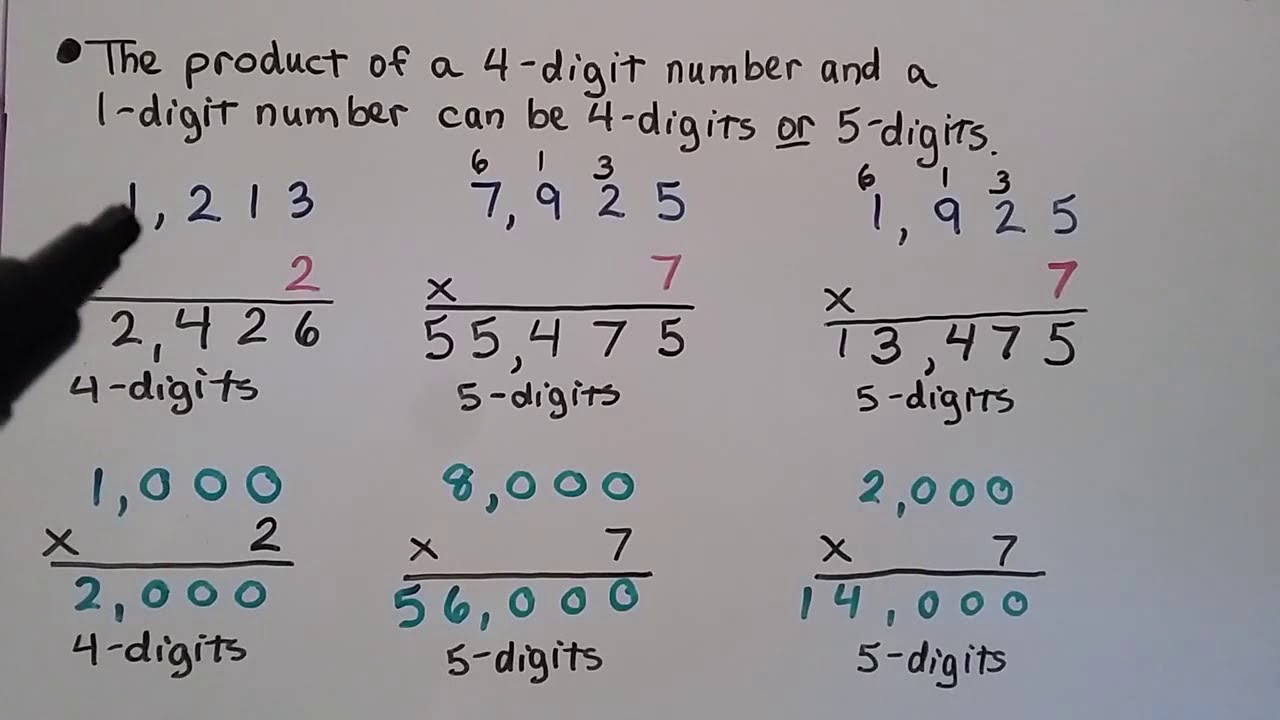 • The product of a 4-digit number and a
1-digit number can be 4-digits or 5-digits.
6 1 3 6 1 3
1,213 7,925 1,925
2 x 7 x 7
2,426 55,475 13,475
4-digits 5-digits 5-digits
1,000 8,000 2,000
x 2 x 7 x 7
2,000 56,000 14,000
4-digits 5-digits 5-digits